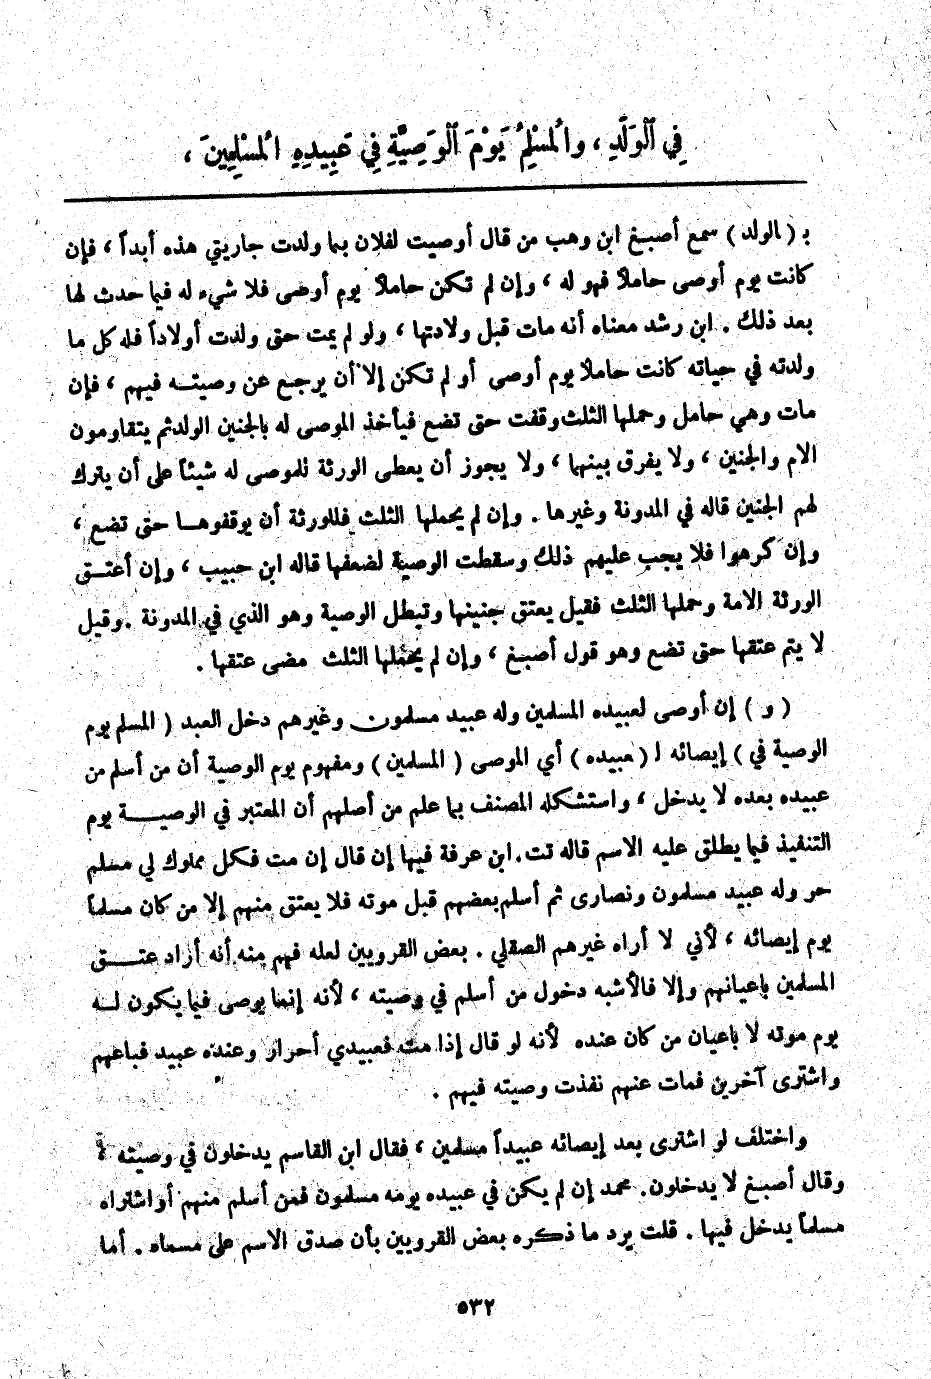 فِي ٱلْوَلَدِ ، وَالْمُسْلِمُ يَوْمَ ٱلْوَصِيَّةِ فِي عَبِيدِهِ الْمُسْلِمِينَ ،
بـ ( الولد ) سمع أصبغ ابن وهب من قال أوصيت لفلان بما ولدت جاريتي هذه أبداً ، فإن
كانت يوم أوصى حاملاً فهو له ، وإن لم تكن حاملاً يوم أوصى فلا شيء له فيما حدث لها
بعد ذلك . ابن رشد معناه أنه مات قبل ولادتها ، ولو لم يمت حتى ولدت أولاداً فله كل ما
ولدته في حياته كانت حاملاً يوم أوصى أو لم تكن إلا أن يرجع عن وصيتـه فيهم ، فإن
مات وهي حامل وحملها الثلث وقفت حتى تضع فيأخذ الموصى له بالجنين الولد ثم يتقاومون
الام والجنين ، ولا يفرق بينهما ، ولا يجوز أن يعطى الورثة للموصى له شيئاً على أن يترك
لهم الجنين قاله في المدونة وغيرها . وإن لم يحملها الثلث فللورثة أن يوقفوهـا حتى تضع ،
وإن كرهوا فلا يجب عليهم ذلك وسقطت الوصية لضعفها قاله ابن حبيب ، وإن أعتـق
الورثة الامة وحملها الثلث فقيل يعتق جنينها وتبطل الوصية وهو الذي في المدونة . وقيل
لا يتم عتقها حتى تضع وهو قول أصبغ ، وإن لم يحملها الثلث مضى عتقها .
( و ) إن أوصى لعبيده المسلمين وله عبيد مسلمون وغيرهم دخل العبد ( المسلم يوم
الوصية في ) إيصائه لـ ( عبيده ) أي الموصى ( المسلمين ) ومفهوم يوم الوصية أن من أسلم من
عبيده بعده لا يدخل ، واستشكله المصنف بما علم من أصلهم أن المعتبر في الوصيـــة يوم
التنفيذ فيما يطلق عليه الاسم قاله تت . ابن عرفة فيها إن قال إن مت فكل مملوك لي مسلم
حر وله عبيد مسلمون ونصارى ثم أسلم بعضهم قبل موته فلا يعتق منهم إلا من كان مسلماً
يوم إيصائه ، لأني لا أراه غيرهم الصقلي . بعض القرويين لعله فهم منه أنه أراد عتـــق
المسلمين بإعيانهم وإلا فالأشبه دخول من أسلم في وصيته ، لأنه إنما يوصى فيما يكون لــه
يوم موته لا باعيان من كان عنده لأنه لو قال إذا مت فعبيدي أحرار وعنده عبيد فباعهم
واشترى آخرين فمات عنهم نفذت وصيته فيهم .
واختلف لو اشترى بعد إيصائه عبيداً مسلمين ، فقال ابن القاسم يدخلون في وصيته
وقال أصبغ لا يدخلون . محمد إن لم يكن في عبيده يومه مسلمون فمن أسلم منهم أو اشتراه
مسلماً يدخل فيها . قلت يرد ما ذكره بعض القرويين بأن صدق الاسم على مسماه . أما
٥٣٢